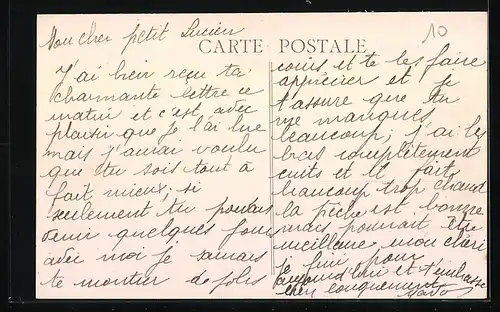 Mon cher petit Lucien
CARTE POSTALE
10
J'ai bien reçu ta
charmante lettre ce
matin et c'est avec
plaisir que je l'ai lue
mais j'aurai voulu
que tu sois tout à
fait mieux; si
seulement tu pouvais
venir quelques jours
avec moi je
te montrer de jolis
coins et te les faire
apprécier et je
t'assure que tu
me manques
beaucoup; j'ai les
bras complètement
cuits et il fait
beaucoup trop chaud
la pêche est bonne
mais pourrait être
meilleure mon chéri
je finis pour
aujourd'hui et t'embrasse
bien longuement